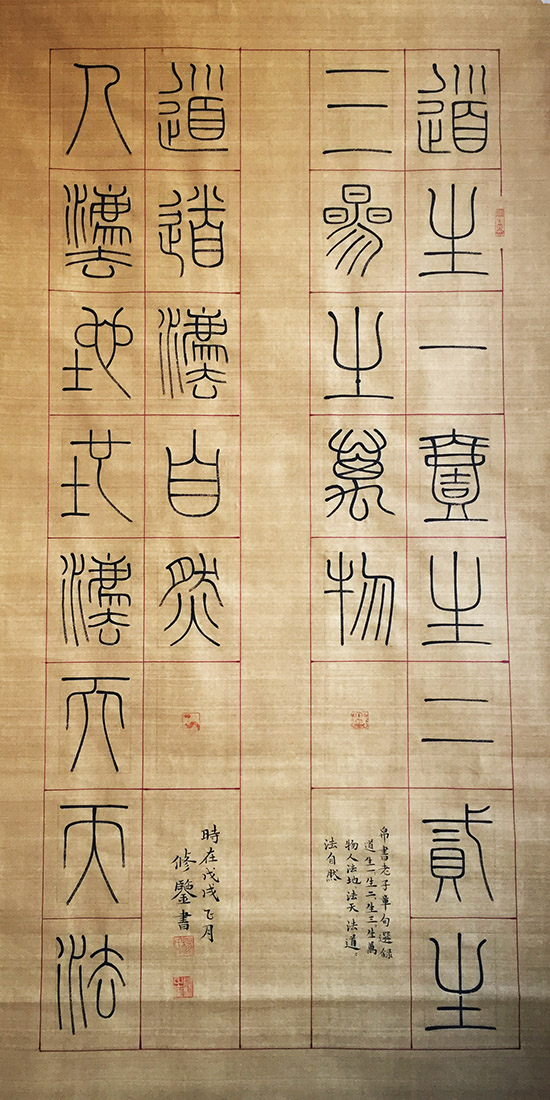 道生一壹生二貳生
三參生萬物
帛書老子章句選錄
道生一生二生三生萬
物人法地法天法道
法自然
人灋地地灋天天法
道道灋自然
時在戊戌月
修鑒書